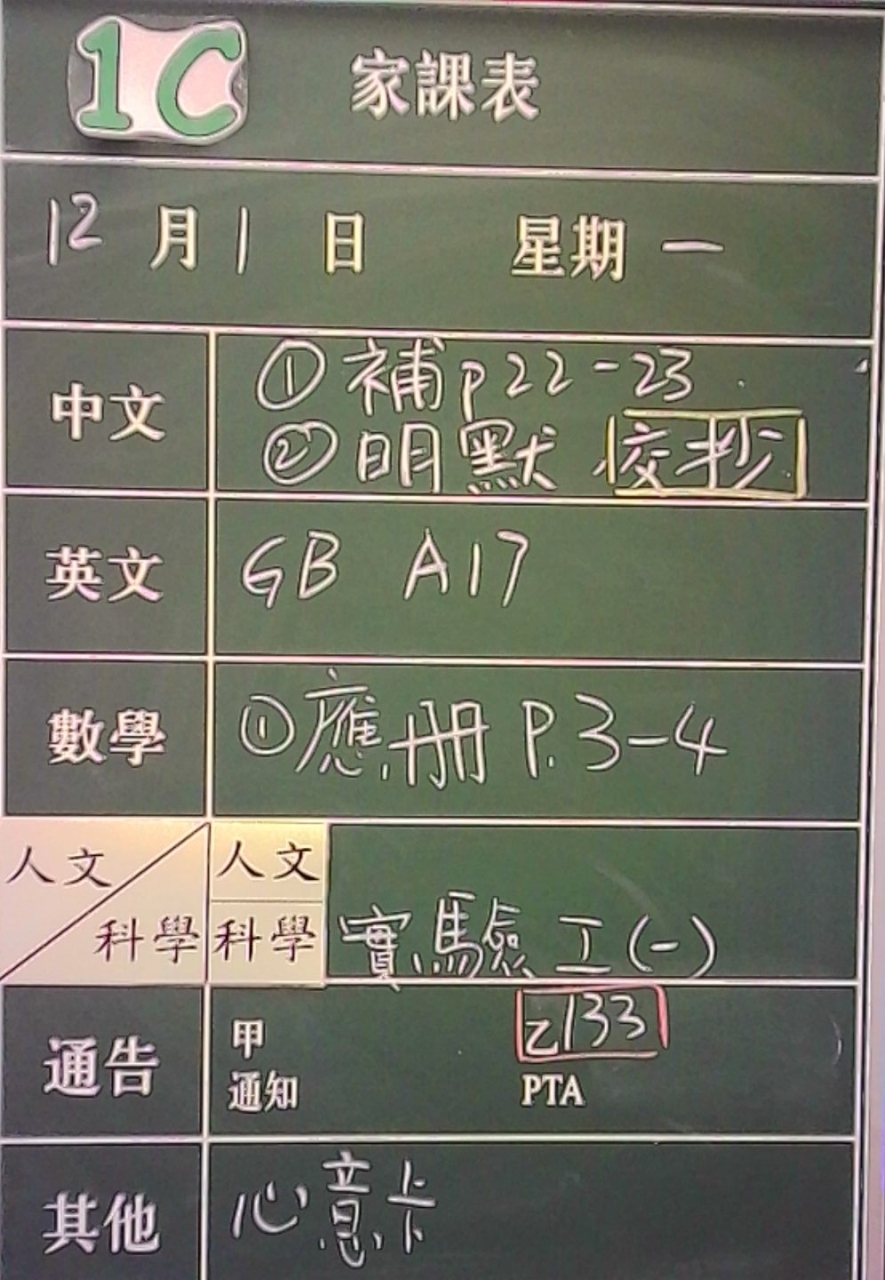 1C 家課表
12月1日 星期一
中文 ①補p22-23
②明默 交抄
英文 GB A17
數學 ①應冊 P.3-4
人文 人文
科學 科學 實驗工(一)
通告 甲 乙133
通知 PTA
其他 心意卡